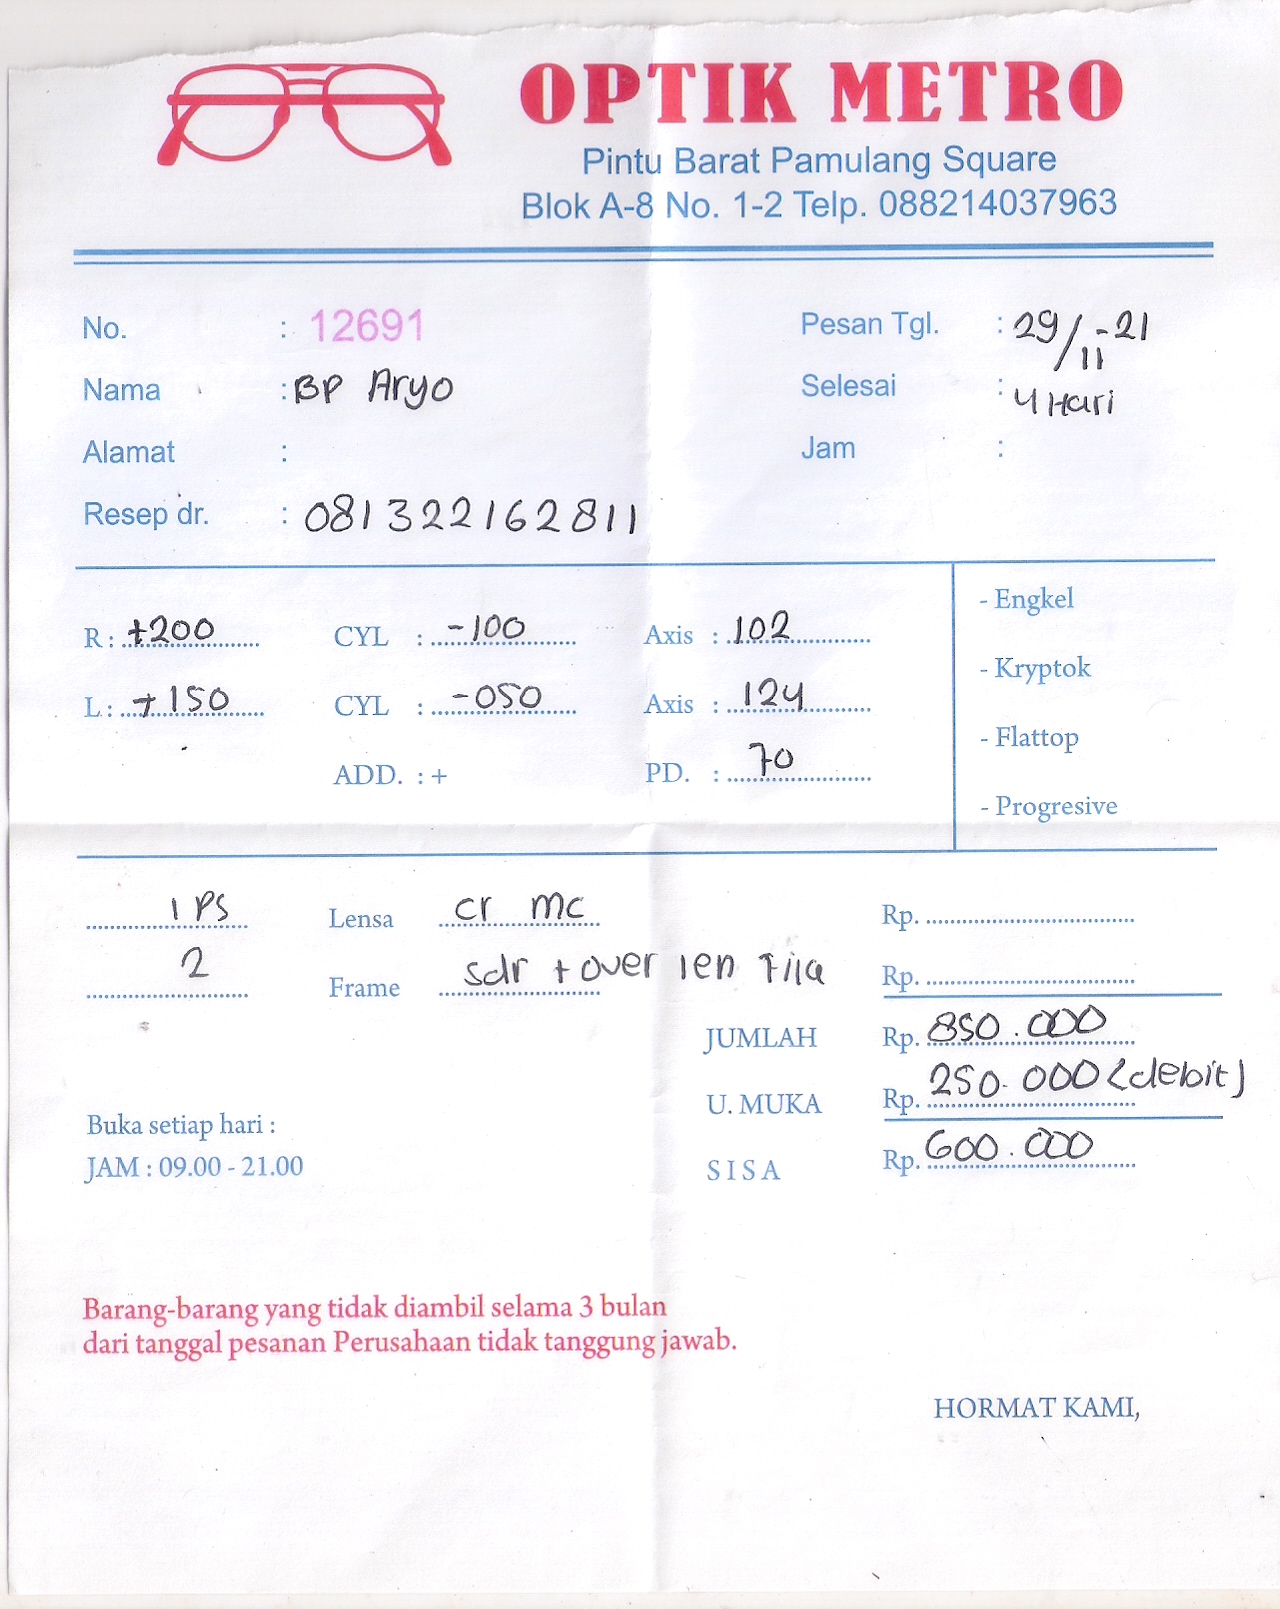 OPTIK METRO
Pintu Barat Pamulang Square
Blok A-8 No. 1-2 Telp. 088214037963
No. : 12691 Pesan Tgl. : 29/11-21
Nama : BP Aryo Selesai : 4 Hari
Alamat : Jam :
Resep dr. : 081322162811
R : +200 CYL : -100 Axis : 102
L : +150 CYL : -050 Axis : 124
ADD. : + PD. : 70
- Engkel
- Kryptok
- Flattop
- Progresive
1 PS Lensa cr mc Rp.
2 Frame sdr + over len Fila Rp.
JUMLAH Rp. 850.000
U. MUKA Rp. 250.000 (debit)
SISA Rp. 600.000
Buka setiap hari :
JAM : 09.00 - 21.00
Barang-barang yang tidak diambil selama 3 bulan
dari tanggal pesanan Perusahaan tidak tanggung jawab.
HORMAT KAMI,